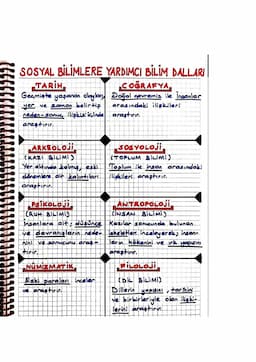 SOSYAL BİLİMLERE YARDIMCI BİLİM DALLARI
TARİH
Geçmişte yaşanan olayları,
yer ve zaman belirtip
neden-sonuç ilişkisi içinde
araştırır.
COĞRAFYA
Doğal çevremiz ile insanlar
arasındaki ilişkileri
araştırır.
ARKEOLOJİ
(KAZI BİLİMİ)
Yer altında kalmış, eski
dönemlere ait kalıntıları
araştırır.
SOSYOLOJİ
(TOPLUM BİLİMİ)
Toplum ile insan arasındaki
ilişkileri araştırır.
PSİKOLOJİ
(RUH BİLİMİ)
İnsanlara ait; düşünce
ve davranışların, nede-
nini ve sonucunu araş-
tırır.
ANTROPOLOJİ
(İNSAN BİLİMİ)
Kazılar sonucunda bulunan
iskeletleri inceleyerek; insan-
ların kökenini ve ırk yapısını
araştırır.
NÜMİZMATİK
Eski paraları inceler
ve araştırır.
FİLOLOJİ
(DİL BİLİMİ)
Dillerin yapısını, tarihini
ve birbirleriyle olan ilişki-
lerini araştırır.